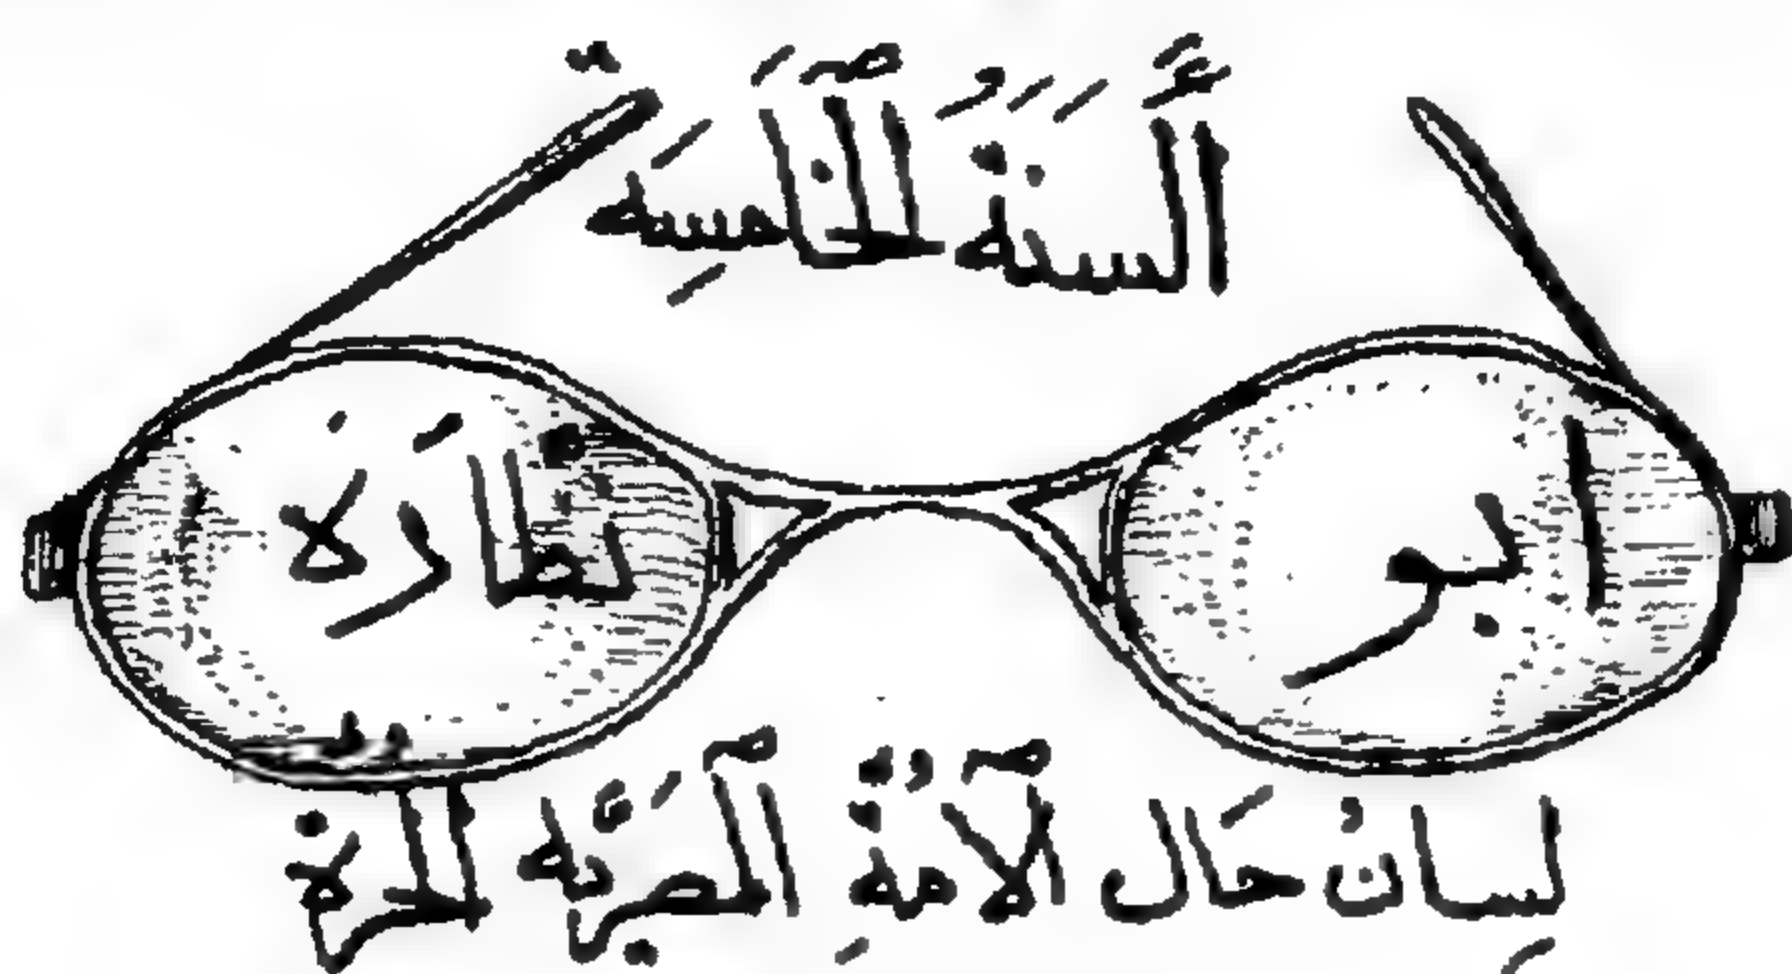 اَلَّسَنَةُ اَلْخَامِسَةِ
ابو نظَّارَة
لِسانُ حَال اَلْأُمَّةِ اَلْمِصْرِيَّةِ الحرة